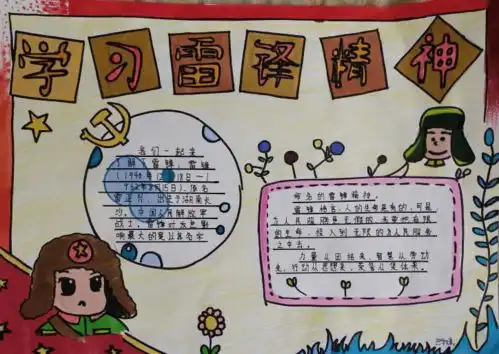 学习雷锋精神
我们一起来
了解了雷锋！雷锋
(1940年12月18日—
1962年8月15日)，原名
雷正兴，出生于湖南长
沙，中国人民解放军
战士，雷锋对后世影
响最大的是以其名字
命名的雷锋精神。
雷锋格言：人的生命是有的，可是
为人民服务是无限的，我要把有限
的生命，投入到无限的为人民服务
之中去。
力量从团结来，智慧从劳动
来，行动从思想来，荣誉从集体来。